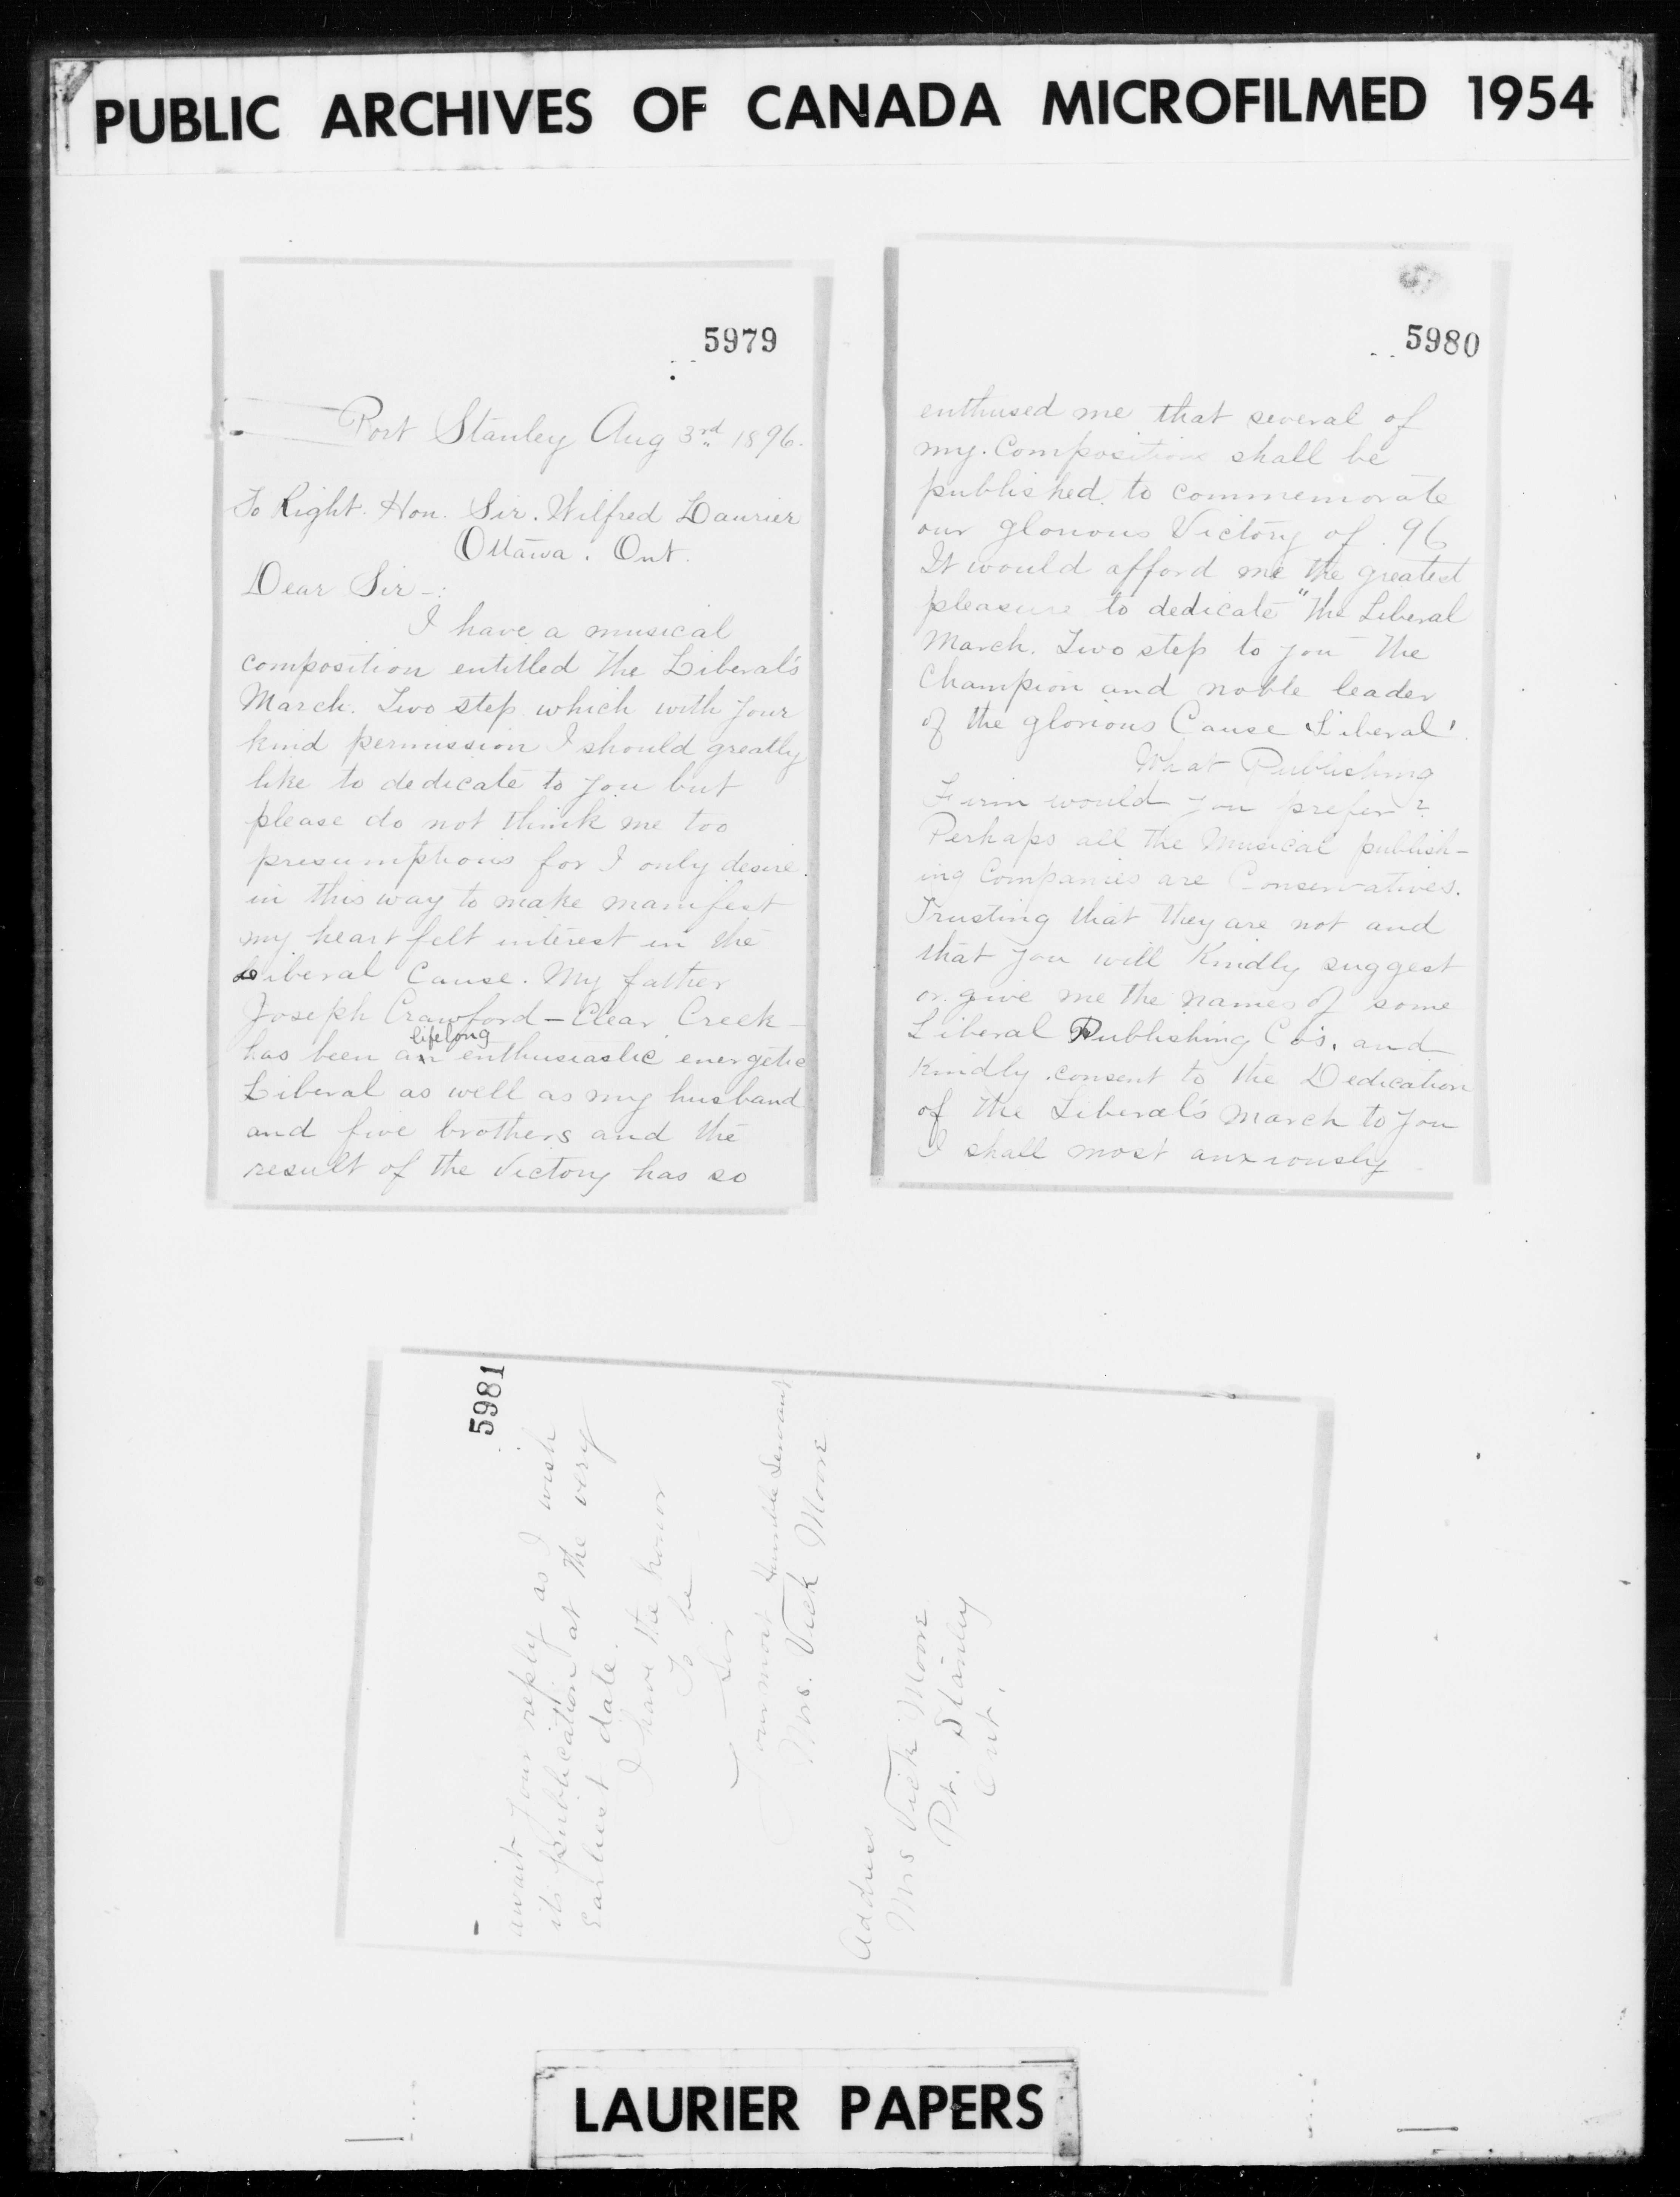 PUBLIC ARCHIVES OF CANADA MICROFILMED 1954
5979
Port Stanley Aug 3rd 1896.
To Right. Hon. Sir. Wilfred Laurier
Ottawa. Ont.
Dear Sir -:
I have a musical
composition entitled The Liberal's
March. Two step which with your
kind permission I should greatly
like to dedicate to you but
please do not think me too
presumptious for I only desire.
in this way to make manifest
my heart felt interest in the
Liberal Cause. My father
Joseph Crawford - Clear Creek -
lifelong
has been an enthusiastic energetic
Liberal as well as my husband
and five brothers and the
result of the Victory has so
5980
enthused me that several of
my. Compositions shall be
published to commemorate
our glorious Victory of . 96
It would afford me the greatest
pleasure to dedicate "The Liberal
March. Two step to you The
Champion and noble leader
of the glorious Cause 'Liberal'.
What Publishing
Firm would you prefer?
Perhaps all the Musical publish-
ing Companies are Conservatives.
Trusting that they are not and
that you will Kindly suggest
or give me the names of some
Liberal Publishing Co's. and
Kindly consent to the Dedication
of The Liberal's March to you
I shall most anxiously
5981
await your reply as I wish
its publication at the very
Earliest date.
I have the honor
To be
Sir
Your most Humble Servant
Mrs. Vick Moore
Address
Mrs Vick Moore
Pt. Stanley
Ont.
LAURIER PAPERS